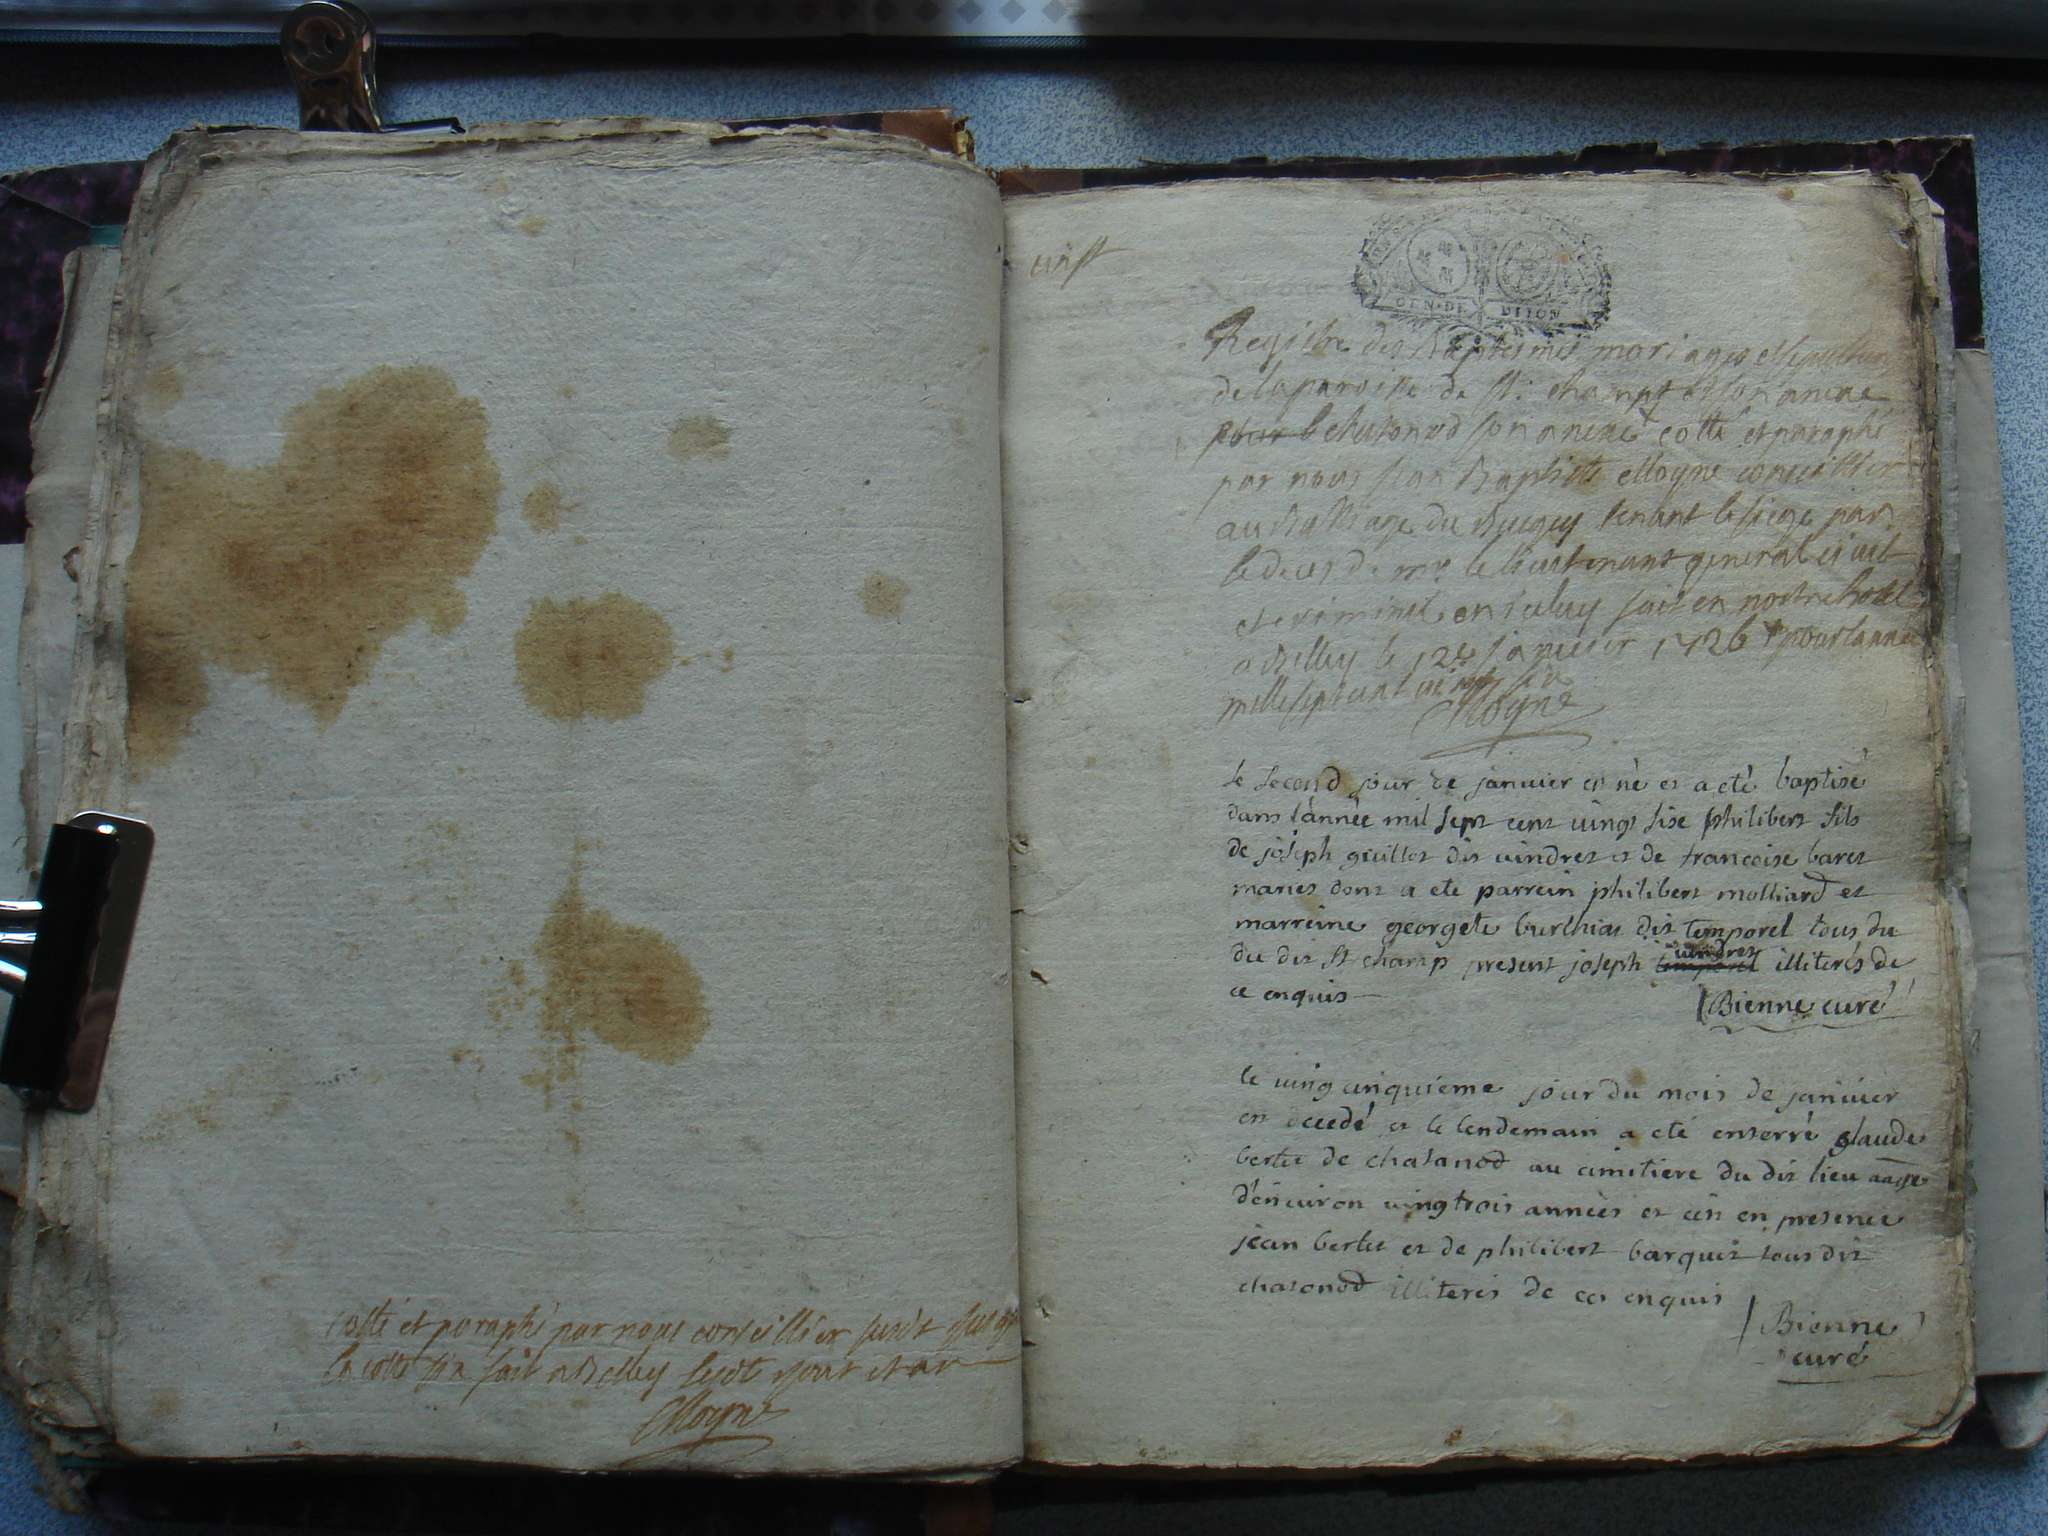 cotté et paraphé par nous conseillier susdt
la cotte six fait a Belley lesdt jour et an
Moyne
GEN · DE DIJON
Registre des Baptesmes mariages et sepultures
de la paroisse de st: champt et son anexe
pour le chatonod son anexe cotté et paraphé
par nous Jean Baptiste Moyne conseillier
au Balliage du Bugey tenant le siege par
le deces de mr le lieutenant general civil
et criminel en iceluy fait en nostre hotel
a Belley le 12e janvier 1726 pour lannée
mille sept cent vingt six
Moyne
le second jour de janvier es né et a eté baptisé
dans l'année mil sept cent ving sixe philibert fils
de joseph guillot dit vindret et de francoise baret
mariés dont a eté parrein philibert molliard et
marreine georgete burthias dit temporel tous du
du dit st champ present joseph temporel vindret illiterés de
ce enquis
Bienne curé
le ving cinquieme jour du mois de janvier
est decedé et le lendemain a eté enterré glaude
bertet de chatanod au cimitiere du dit lieu aagé
d'environ ving trois années et ces en presence
jean bertet et de philibert barquet tous dit
chatonod illiterés de ces enquis
Bienne
curé